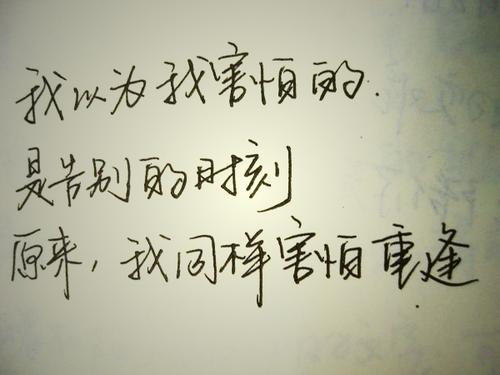 我以为我害怕的.
是告别的时刻
原来，我同样害怕重逢.